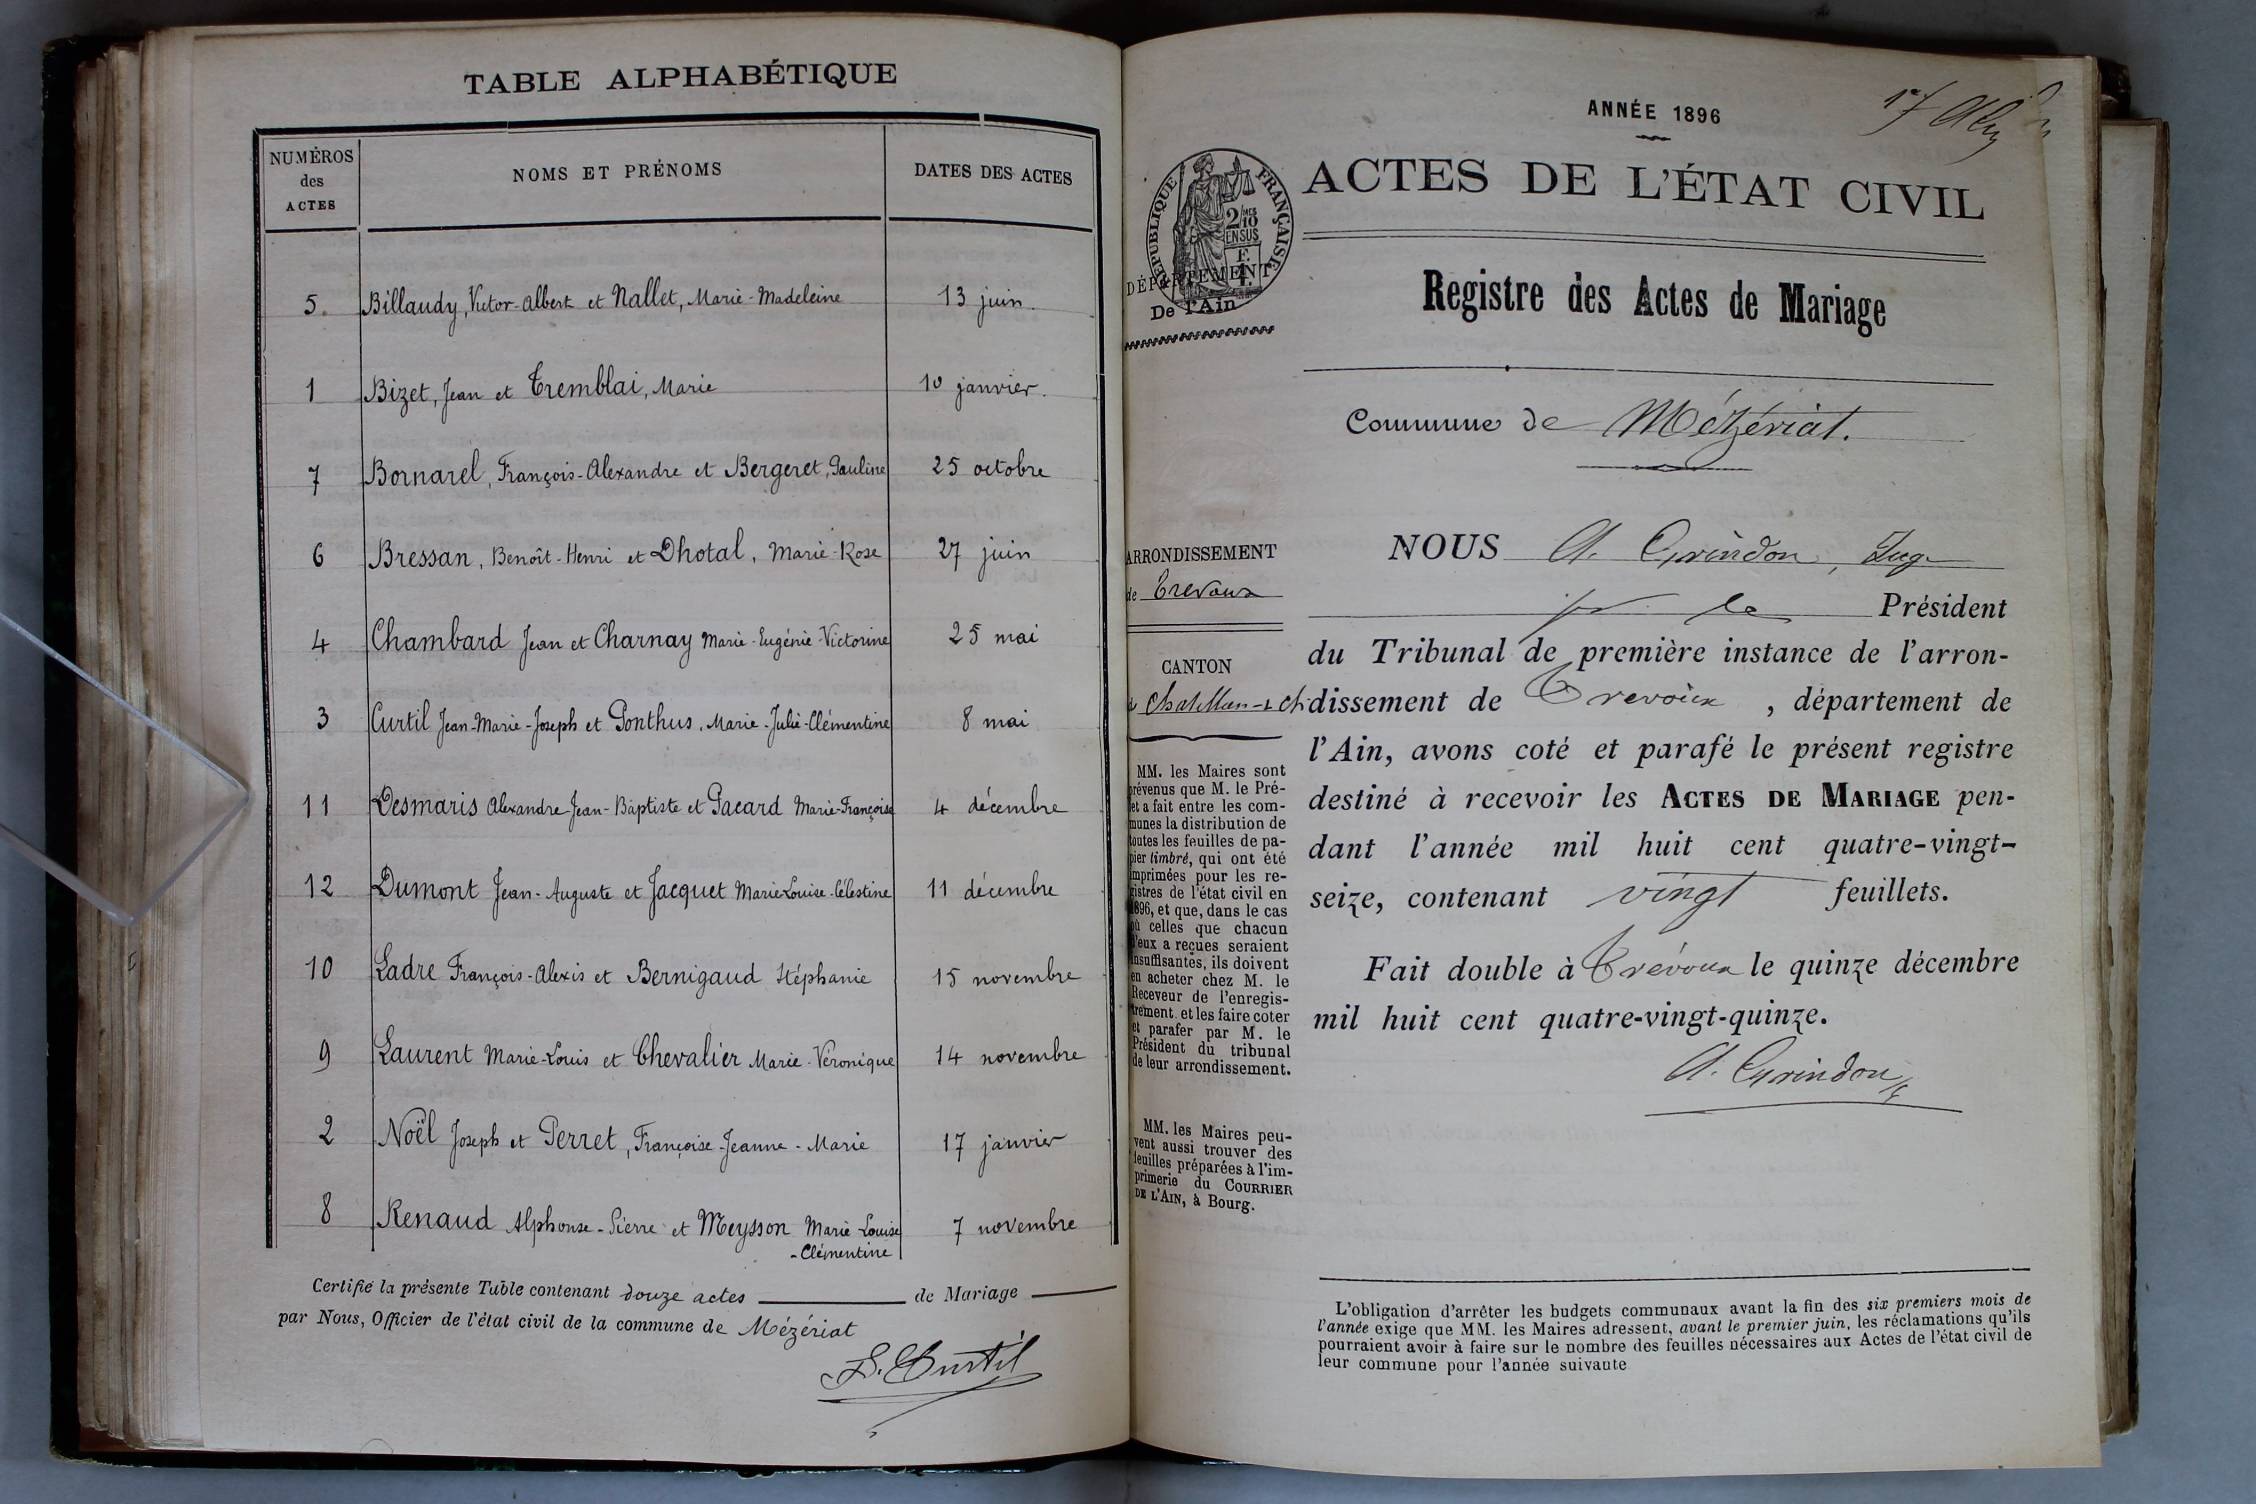 TABLE ALPHABÉTIQUE
NUMÉROS
des
ACTES
NOMS ET PRÉNOMS
DATES DES ACTES
5. Billaudy, Victor-Albert et Nallet, Marie-Madeleine 13 juin.
1 Bizet, Jean et Tremblai, Marie 10 janvier.
7 Bornarel, François-Alexandre et Bergeret, Pauline 25 octobre
6 Bressan, Benoît-Henri et Dhotal, Marie-Rose 27 juin
4 Chambard Jean et Charnay Marie-Eugénie-Victorine 25 mai
3 Curtil Jean-Marie-Joseph et Ponthus, Marie-Julie-Clémentine 8 mai
11 Desmaris Alexandre-Jean-Baptiste et Pacard Marie-Françoise 4 décembre
12 Dumont Jean-Auguste et Jacquet Marie Louise-Célestine 11 décembre
10 Ladre François-Alexis et Bernigaud Stéphanie 15 novembre
9 Laurent Marie-Louis et Chevalier Marie-Véronique 14 novembre
2 Noël Joseph et Perret, Françoise-Jeanne-Marie 17 janvier
8 Renaud Alphonse-Pierre et Meysson Marie Louise 7 novembre
-Clémentine
Certifié la présente Table contenant douze actes de Mariage
par Nous, Officier de l'état civil de la commune de Mézériat
L. Curtil
ANNÉE 1896
ACTES DE L'ÉTAT CIVIL
RÉPUBLIQUE FRANÇAISE
2/10
EN SUS
DÉPARTEMENT
De l'Ain
Registre des Actes de Mariage
Commune de Mézériat.
ARRONDISSEMENT
de Trevoux
CANTON
NOUS A. Grindon, Juge
pr le Président
du Tribunal de première instance de l'arron-
dissement de Trevoux, département de
l'Ain, avons coté et parafé le présent registre
destiné à recevoir les ACTES DE MARIAGE pen-
dant l'année mil huit cent quatre-vingt-
seize, contenant vingt feuillets.
Fait double à Trévoux le quinze décembre
mil huit cent quatre-vingt-quinze.
A. Grindon
MM. les Maires sont
prévenus que M. le Pré-
fet a fait entre les com-
munes la distribution de
toutes les feuilles de pa-
pier timbré, qui ont été
imprimées pour les re-
gistres de l'état civil en
1896, et que, dans le cas
où celles que chacun
d'eux a reçues seraient
insuffisantes, ils doivent
en acheter chez M. le
Receveur de l'enregis-
trement et les faire coter
et parafer par M. le
Président du tribunal
de leur arrondissement.
MM. les Maires peu-
vent aussi trouver des
feuilles préparées à l'im-
primerie du COURRIER
DE L'AIN, à Bourg.
L'obligation d'arrêter les budgets communaux avant la fin des six premiers mois de
l'année exige que MM. les Maires adressent, avant le premier juin, les réclamations qu'ils
pourraient avoir à faire sur le nombre des feuilles nécessaires aux Actes de l'état civil de
leur commune pour l'année suivante